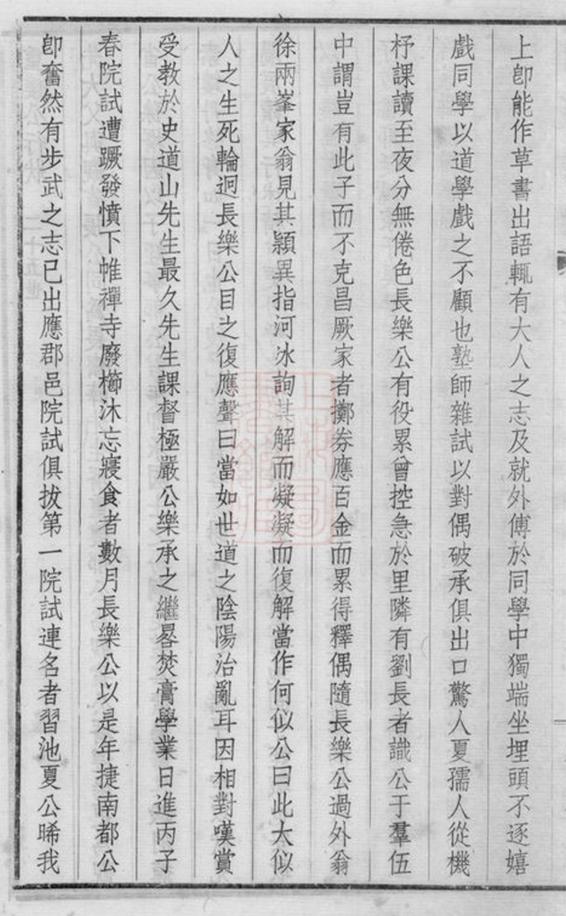 上卽能作草書出語輒有大人之志及就外傅於同學中獨端坐埋頭不逐嬉
戲同學以道學戲之不顧也塾師雜試以對偶破承俱出口驚人夏孺人從機
杼課讀至夜分無倦色長樂公有役累曾控急於里隣有劉長者識公于羣伍
中謂豈有此子而不克昌厥家者擲券應百金而累得釋偶隨長樂公過外翁
徐兩峯家翁見其穎異指河冰詢其解而凝凝而復解當作何似公曰此大似
人之生死輪迥長樂公目之復應聲曰當如世道之陰陽治亂耳因相對嘆賞
受教於史道山先生最久先生課督極嚴公樂承之繼晷焚膏學業日進丙子
春院試遭蹶發憤下帷禪寺廢櫛沐忘寢食者數月長樂公以是年捷南都公
卽奮然有步武之志已出應郡邑院試俱拔第一院試連名者習池夏公晞我